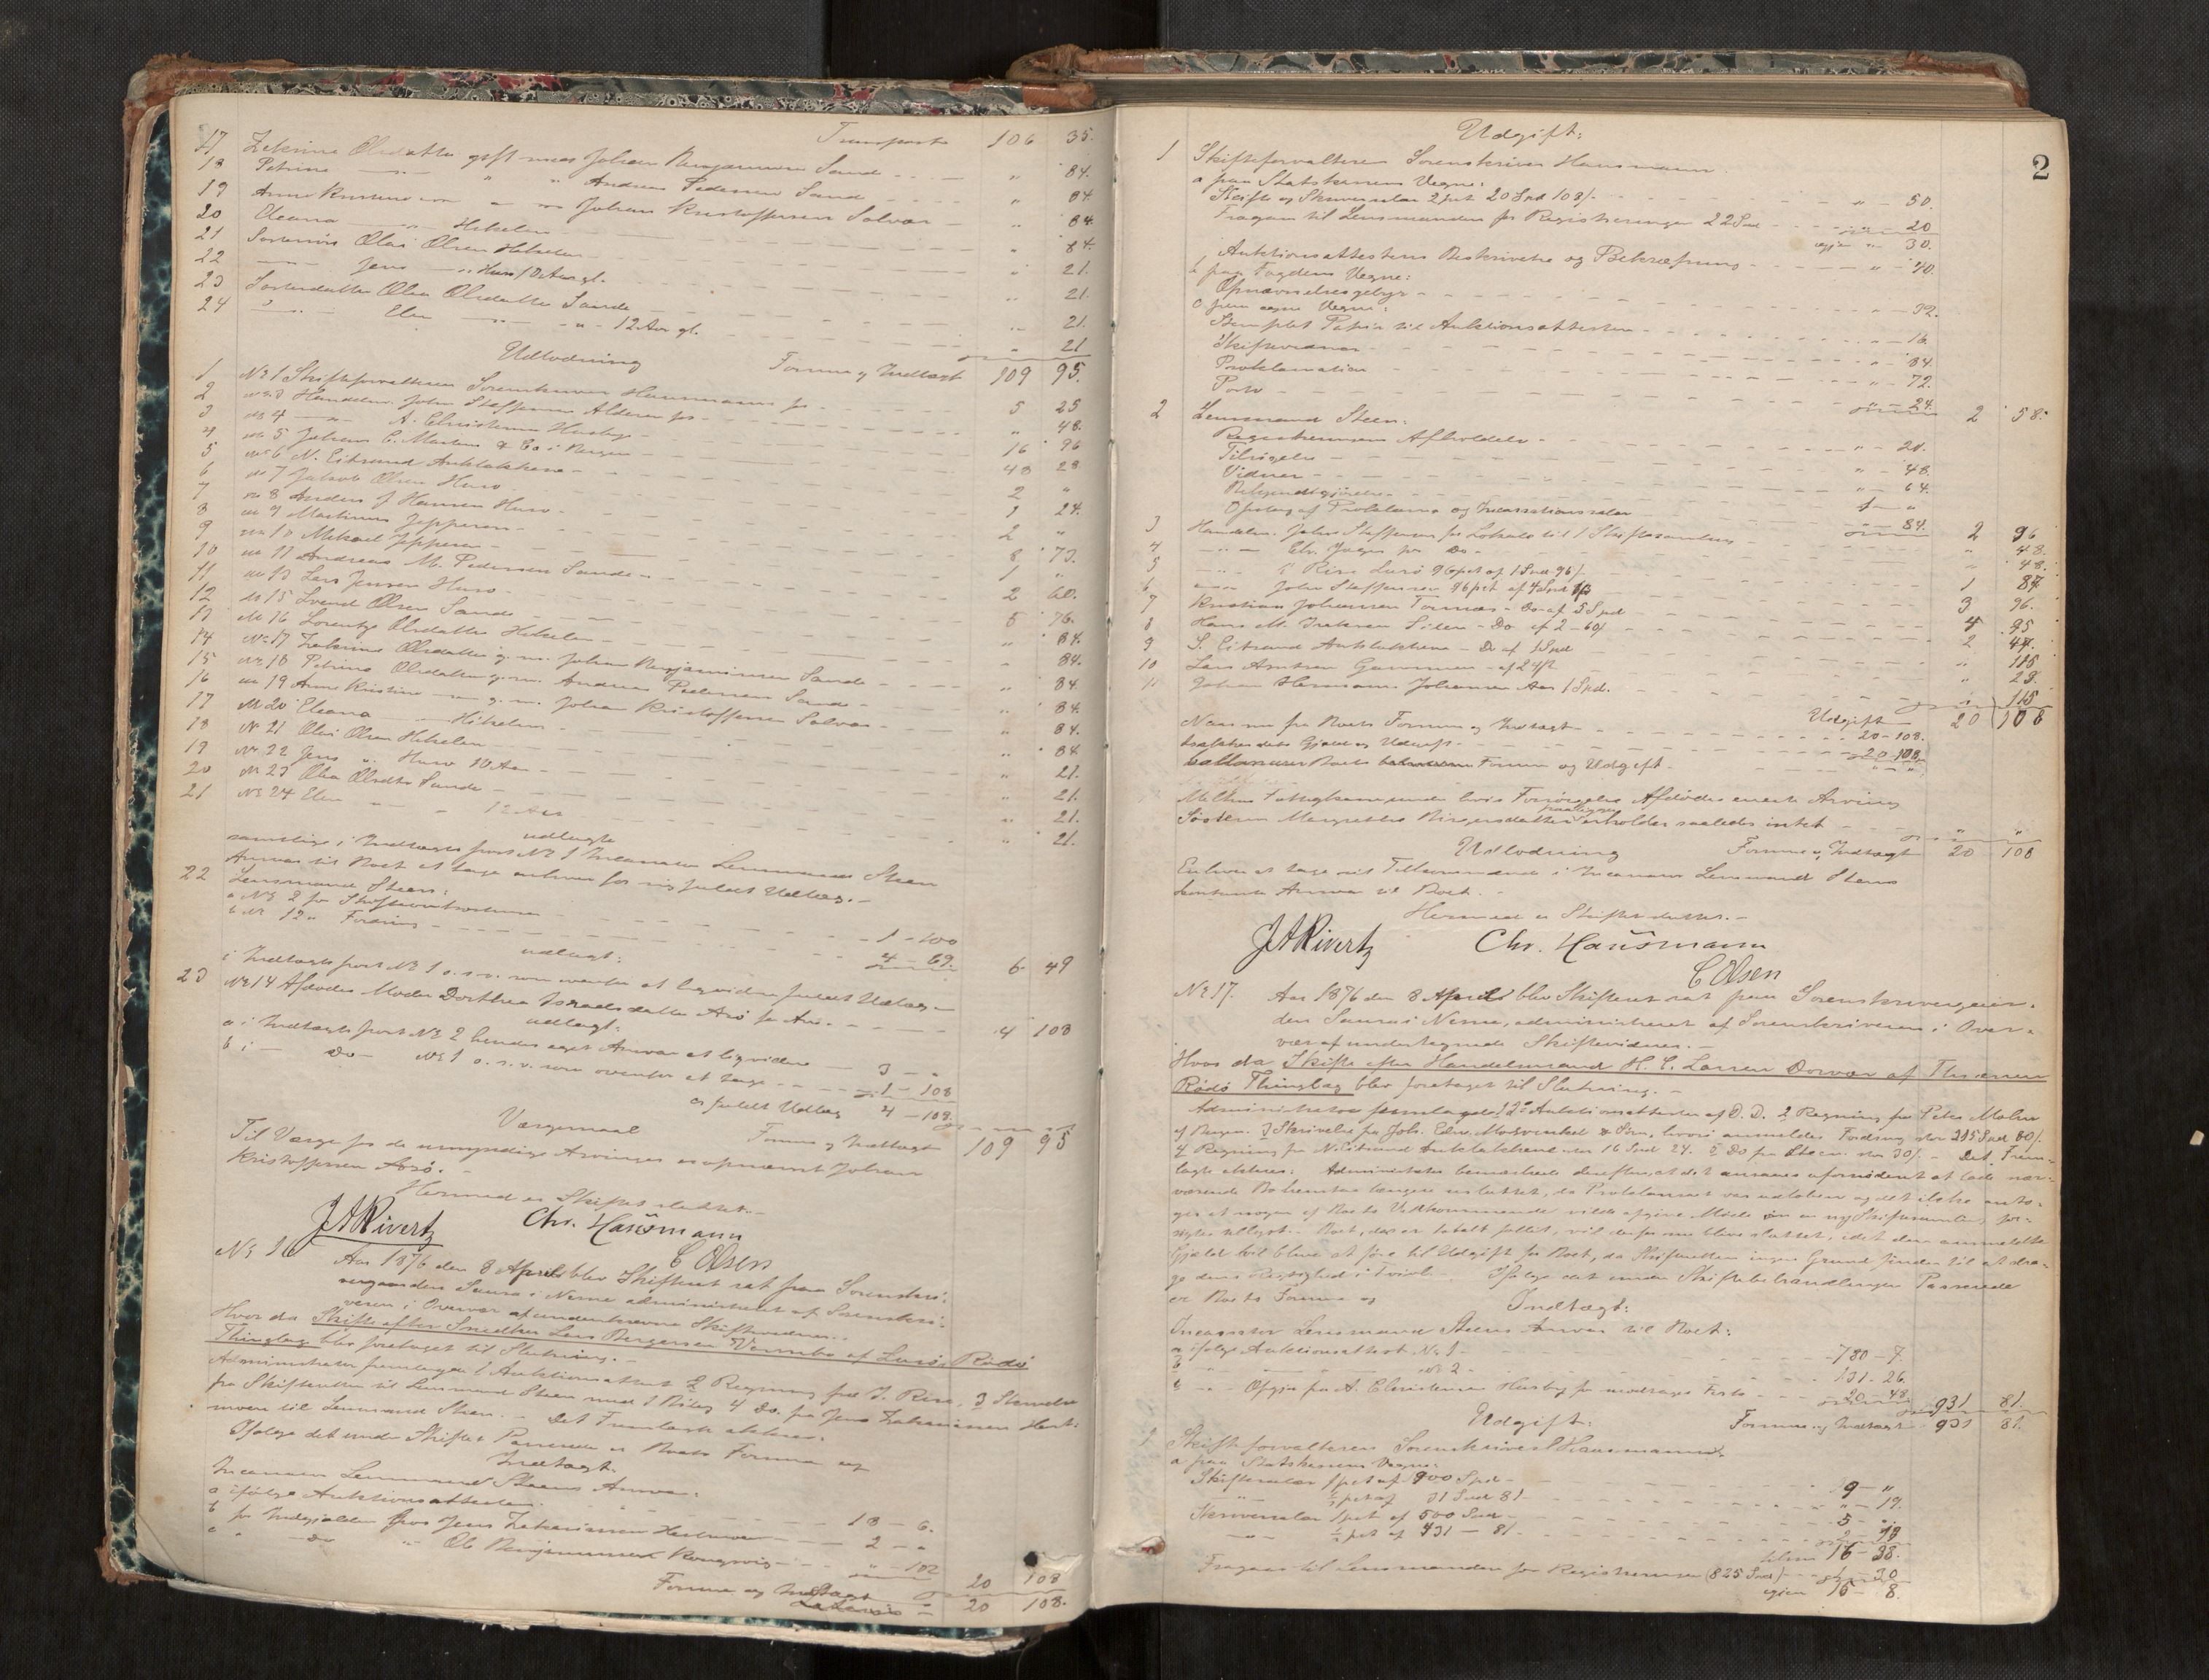 Transport 106 35.
17 Zekrine Olsdatter gift med Johan Benjaminsen Sand " 84.
18 Petrine — " " Andreas Pedersen Sand " 84.
19 Anne Kristine — " — Johan Kristoffersen Solvær " 84.
20 Eleana — Hikelen " 84.
21 Sostersøn Olai Olsen Hikelen " 21.
22 — Jens — Huso 10 Aar gl. " 21.
23 Sosterdatter Olea Olsdatter Sande " 21.
24 — Elen — " - 12 Aar gl. " 21
Udlodning Formue og Indtægt 109 95.
1 № 1 Skifteforvalteren Sorenskriver Hansmann for 5 25
2 № 3 Handelsm. John Steffensen Alderen for " 48.
3 № 4 — A. Christensen Husby 16 96
4 № 5 Johan C. Martens & Co i Bergen 48 28
5 № 6 N. Eitrand Anklakken 2 "
6 № 7 Jakob Olsen Huso 1 24.
7 № 8 Anders J Hansen Huso 2 "
8 № 9 Martinus Jeppesen 8 73.
9 № 10 Mikael Jeppesen 1 "
10 № 11 Andreas M. Pedersen Sande 2 60.
11 № 13 Lars Jensen Huso 5 76.
12 № 15 Svend Olsen Sande " 84.
13 № 16 Lorentze Olsdatter Hikelen " 84.
14 № 17 Zekrine Olsdatter g. m. Johan Benjaminsen Sande " 84.
15 № 18 Petrine Olsdatter g. m. Andreas Pedersen Sand " 84.
16 № 19 Anne Kristine — g. m. Johan Kristoffersen Solvær " 84.
17 № 20 Eleana — Hikelen " 84
18 № 21 Olai Olsen Hikelen " 21.
19 № 22 Jens " Huso 10 Aar " 21.
20 № 23 Olea Olsdtr Sande " 21.
21 № 24 Elen " — 12 Aar " 21.
udlagte
samtlige i Indtægts post № 1 Incassator Lensmand Steen
Ansvar til Boet at tage enhver for sig fuldt Udlæg.-
22 Lensmand Steen:
a № 2 for Skifteomkostninger 1 - 100
b № 12 " Fordring 4 - 69.
udlagt: 6 49
i Indtægts post № 1 o. s. v. som ovenfor at liqvidere fuldt Udlæg
23 № 14 Afdødes Moder Dorthea Israelsdatter Arø for Arv. 4 108
udlagt:
a i Indtægts post № 2 hendes eget Ansvar at liqvidere 3 - "
b i — Do — № 1 o. s. v. som ovenfor at tage 1 - 108
er fuldt Udlæg 4 - 108.
Værgemaal Formue og Indtægt 109 95
Til Værge for de umyndige Arvinger er opnævnt Johan
Kristoffersen Arø.-
Hermed er Skiftet sluttet.-
JARivertz Chr. Hansmann
C Olsen
№ 16 Aar 1876 den 8 April blev Skifteret sat paa Sorenskri-
vergaarden Saura i Nesne administreret af Sorenskri-
veren i Overvær af underskrevne Skiftevidner.-
Hvor da Skifte efter Snedker Lars Bergersen Vornebo af Lurø, Rødø
Thinglag blev foretaget til Slutning.-
Administrator fremlagde 1 Auktionsattest 2 Regning fra J. Rise, 3 Skrivelse
fra Skifteretten til Lensmand Steen med 1 Bilag 4 Do. fra Jens Zakariassen
til Lensmand Steen.- Det Fremlagte akteres.
Ifølge det under Skiftet Passerede er Boets Formue og
Indtægt:
Incassator Lensmand Steens Ansvar:
a ifølge Auktionsattesten 18 - 6.
b for Indgjælden hos Jens Zakariassen 2 - "
c " Do " Ole Benjaminsen " - 102
20 108
Formue og Indtægt 20 108.
2
Udgift:
1 Skifteforvalteren Sorenskriver Hansmann.
a paa Statskassens Vegne:
Skifte og Skriversalær 2 pct 20 Spd 108 / " - 50.
Fragaar til Lensmanden for Registreringen 22 Spd " 20
igjen " 30.
Auktionsattestens Beskrivelse og Bekræftning " - 40.
b paa Fogdens Vegne:
Opnævnelsesgebyr " - 32.
c paa egne Vegne:
Stemplet Papir til Auktionsattesten " - 16.
Skiftevidner " - 84.
Proklamation " - 72.
Porto 24. 2 58.
2 Lensmand Steen:
Registreringens Afholdelse " - 20.
Tilsigelse " - 48.
Vidner " - 64.
Bekjendtgjørelse 1 - "
Opslag af Proklama og Incassationssalær " 84. 2 96
3 Handelsm. John Steffensen for Lokale til 1 Skiftesamling " 48.
4 — " — Chr. Jæger for Do " 48.
5 — " — J Rise Lurø 96 pct af 1 Spd 96 / 1 87
6 — " — John Steffensen 96 pct af 4 Spd 3 96.
7 Kristian Johansen Tonnes - Do af 5 Spd 4 95
8 Hans M. Isaksen Silen - Do af 2 - 60/ 2 47.
9 S. Eitrand Anklakken - Do af 1 Spd " 115
10 Lars Arntsen - af 24/ " 23.
11 Johan Hermann Johansen Aar 1 Spd. " 115
Udgift 20 108
Naar nu fra Boets Formue og Indtægt 20 - 108.
trækkes dets Gjæld og Udgift 20 108.
ballancerer Boets Formue og Udgift " "
Melhus Fattigkasse under hvis Forsørgelse Afdødes eneste Arving
Søsteren Margrethe Birgersdatter erholder saaledes intet " "
Udlodning Formue og Indtægt 20 108
Enhver at tage sit Tilkommende i Incassator Lensmand Steens
Ansvar til Boet.-
Hermed er Skiftet sluttet.-
JARivertz Chr. Hansmann
C Olsen
№ 17. Aar 1876 den 8 April blev Skifteret sat paa Sorenskrivergaar-
den Saura i Nesne, administreret af Sorenskriveren i Over-
vær af undertegnede Skiftevidner.-
Hvor da Skifte efter Handelsmand H. C. Larsen Dorvær af Thrænen
Rødø Thinglag blev foretaget til Slutning.-
Administrator fremlagde 1 2 Auktionsattester af D. D. 2 Regning fra Peter Mohn
af Bergen. 3 Skrivelse fra Joh. Edw. Mowinkel & Søn, hvori anmeldes Fordring stor 215 Spd 80/.
4 Regning fra N. Eitrand Anklakken stor 16 Spd 24. 5 Do fra Steen stor 30/.- Det Frem-
lagte akteres. Administrator bemærkede derefter, at det ansaaes ufornødent at lade nær-
værende Bobehandling længere usluttet, da Proklamaet var udløben og det ikke anto-
ges at nogen af Boets Vedkommende vilde afgive Møde om en ny Skiftesamling for-
øvrigt Boet, der er totalt fallit, vil derfor nu blive sluttet, idet den anmeldte
Gjæld vil blive at føre til Udgift for Boet, da Skifteretten ingen Grund finder til at dra-
ge dens Rigtighed i Tvivl. Ifølge det under Skiftebehandlingen Passerede
er Boets Formue og Indtægt:
Incassator Lensmand Steens Ansvar til Boet:
a ifølge Auktionsattest № 1 780 - 7.
b — " — № 2 131 - 26.
c " — Afgift fra A. Christensen Husby for modtagne 20 - 48. 931 81.
Udgift: Formue og Indtægt 931 81.
1 Skifteforvalteren Sorenskriver Hansmann.
a paa Statskassens Vegne:
Skiftesalær 1 pct af 900 Spd 9 - "
— " — ½ pct af 31 Spd 81 " - 19.
Skriversalær 1 pct af 500 Spd 5 - "
— " — ½ pct af 431 - 81 2 - 19
tilsm 16 - 38.
Fragaar til Lensmanden for Registreringen (825 Spd) 1 - 30
igjen 15 - 8.